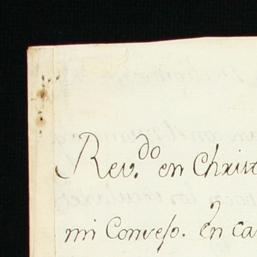 Rev.do en Christ
mi Conveso. En ca